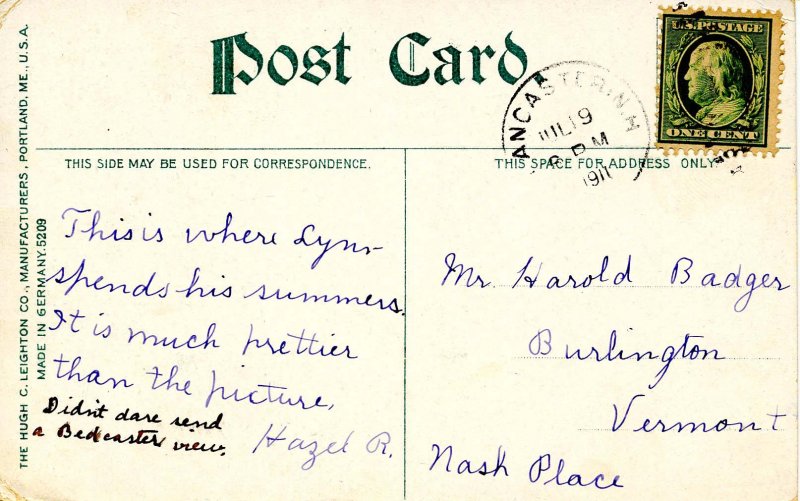 Post Card
U.S. POSTAGE
ONE CENT
ANCASTER, N.H.
JUL 19
PM
1911
THIS SIDE MAY BE USED FOR CORRESPONDENCE.
THIS SPACE FOR ADDRESS ONLY
THE HUGH C. LEIGHTON CO., MANUFACTURERS, PORTLAND, ME., U.S.A.
MADE IN GERMANY. 5209
This is where Lynn
spends his summers.
It is much prettier
than the picture.
Hazel R.
Didn't dare send
a view.
Mr. Harold Badger
Burlington
Vermont
Nash Place